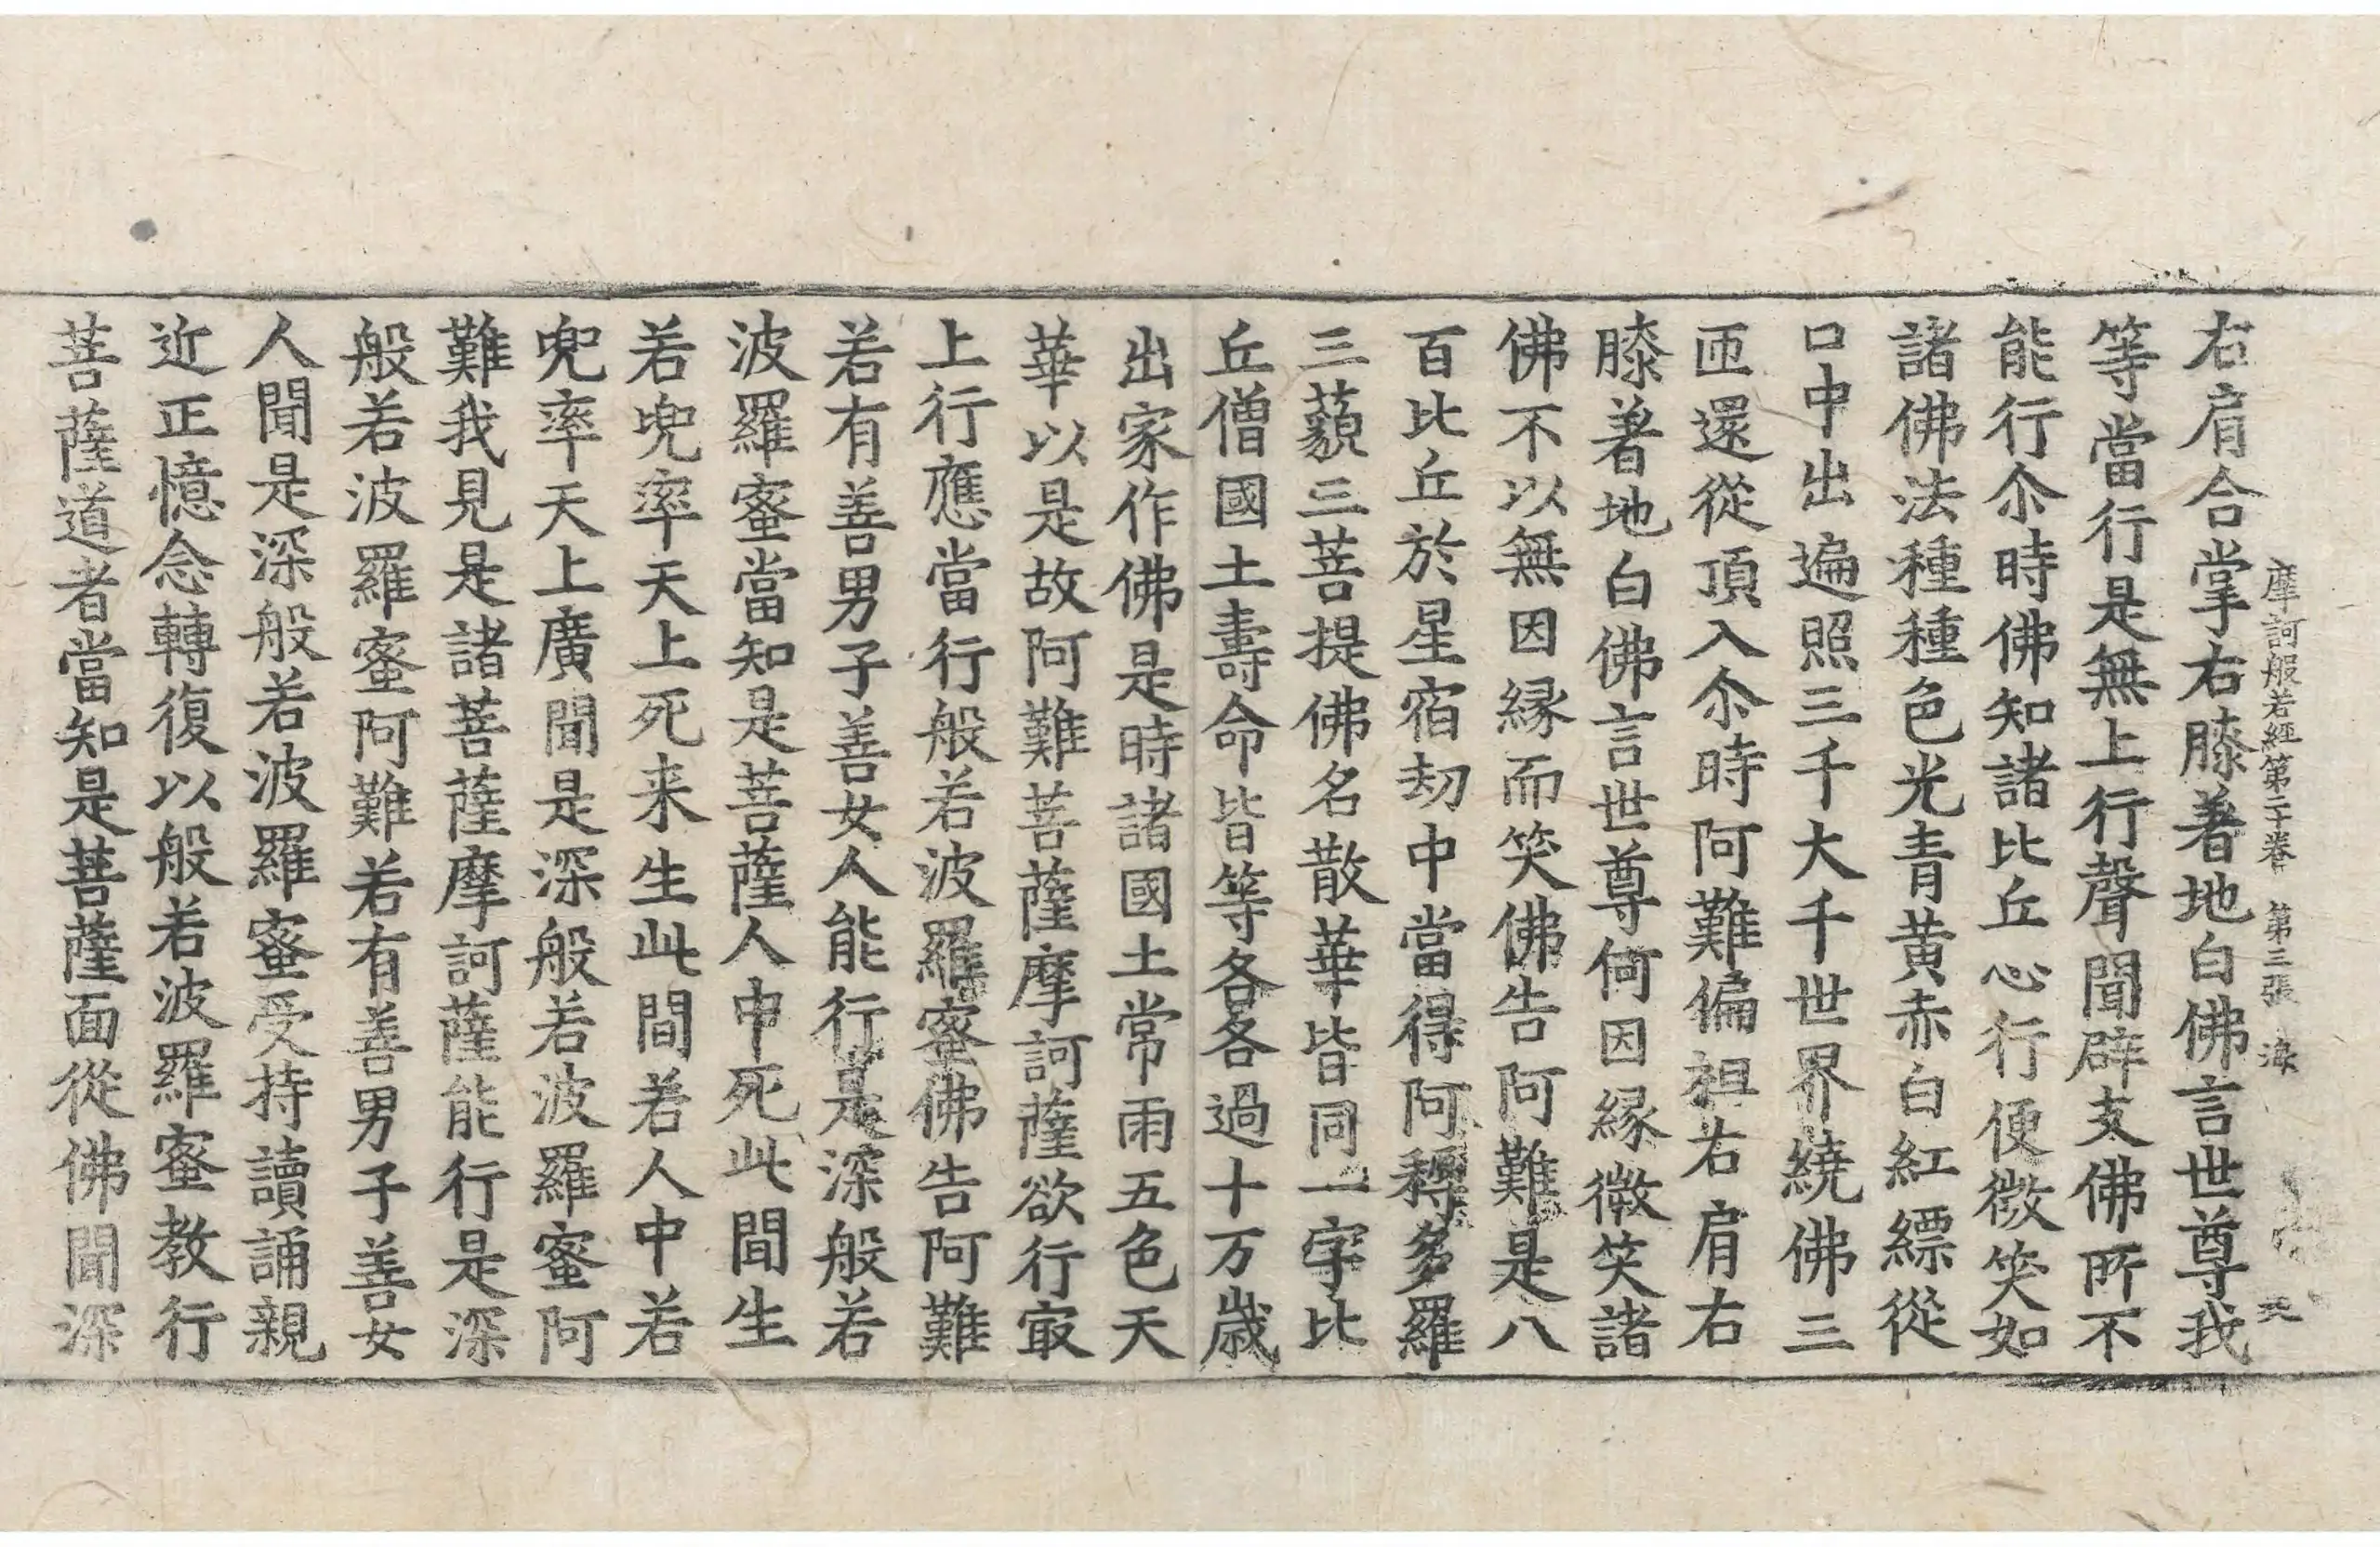 摩訶般若經第二十卷 第三張 海
右肩合掌右膝著地白佛言世尊我
等當行是無上行聲聞辟支佛所不
能行尒時佛知諸比丘心行便微笑如
諸佛法種種色光青黄赤白紅縹從
口中出遍照三千大千世界繞佛三
匝還從頂入尒時阿難偏袒右肩右
膝著地白佛言世尊何因縁微笑諸
佛不以無因縁而笑佛告阿難是八
百比丘於星宿劫中當得阿耨多羅
三藐三菩提佛名散華皆同一字比
丘僧國土壽命皆等各各過十万歳
出家作佛是時諸國土常雨五色天
華以是故阿難菩薩摩訶薩欲行㝡
上行應當行般若波羅蜜佛告阿難
若有善男子善女人能行是深般若
波羅蜜當知是菩薩人中死此間生
若兜率天上死来生此間若人中若
兜率天上廣聞是深般若波羅蜜阿
難我見是諸菩薩摩訶薩能行是深
般若波羅蜜阿難若有善男子善女
人聞是深般若波羅蜜受持讀誦親
近正憶念轉復以般若波羅蜜教行
菩薩道者當知是菩薩面從佛聞深